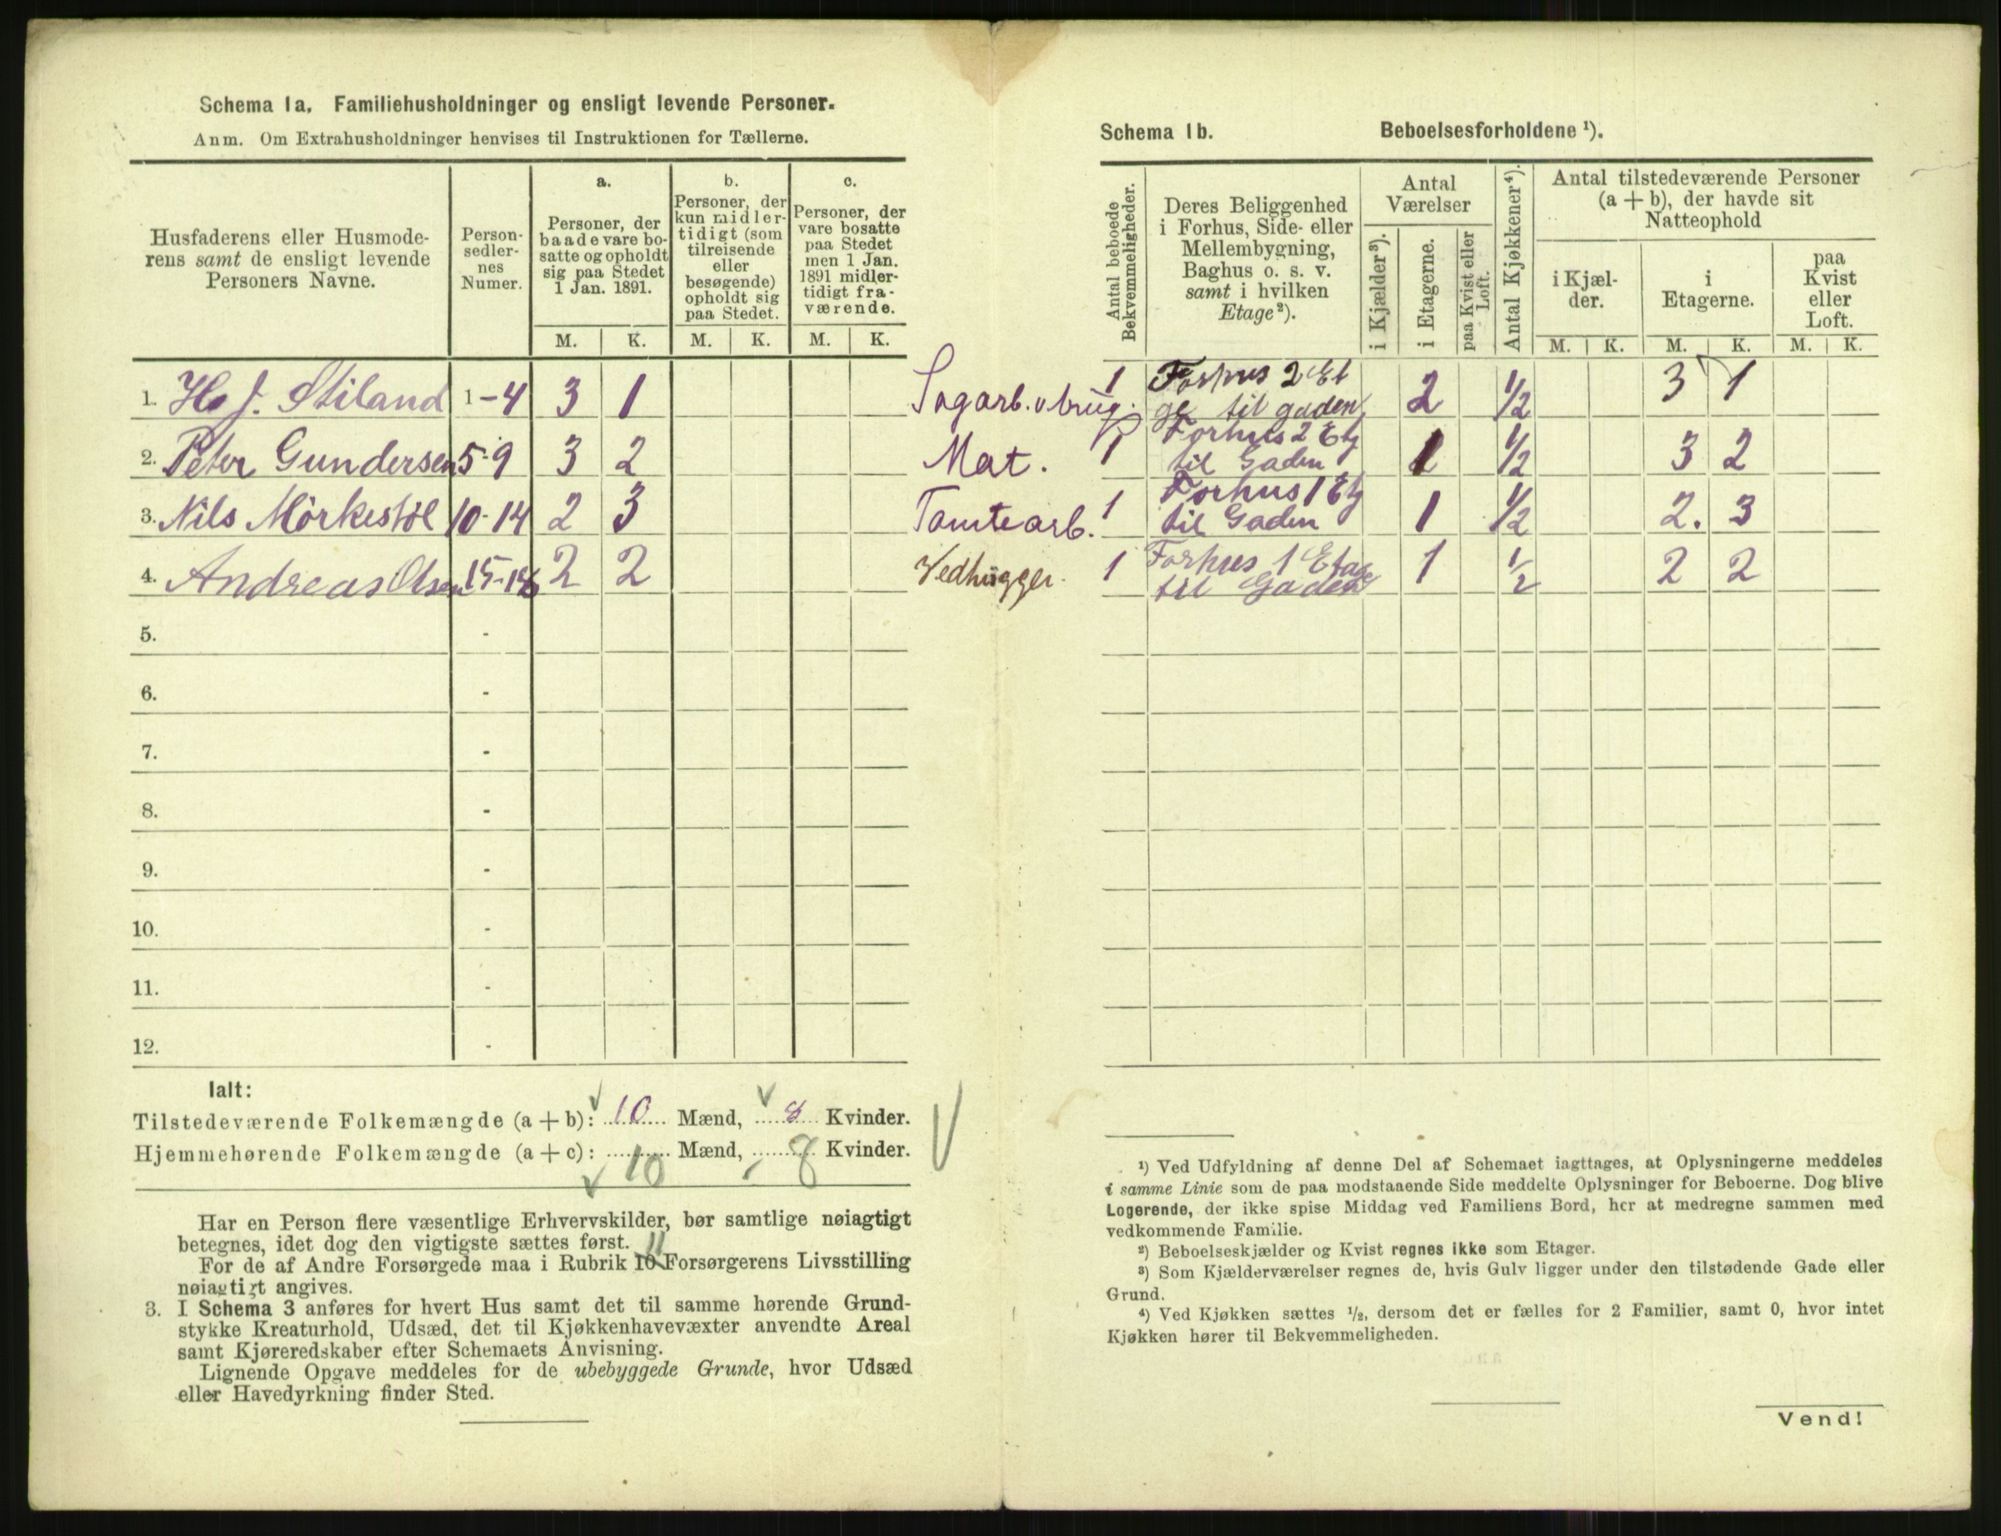 Schema 1a. Familiehusholdninger og ensligt levende Personer.
Anm. Om Extrahusholdninger henvises til Instruktionen for Tællerne.
Husfaderens eller Husmode-
rens samt de ensligt levende
Personers Navne.
Person-
sedler-
nes
Numer.
a.
Personer, der
baade vare bo-
satte og opholdt
sig paa Stedet
1 Jan. 1891.
b.
Personer, der
kun midler-
tidigt (som
tilreisende
eller
besøgende)
opholdt sig
paa Stedet.
c.
Personer, der
vare bosatte
paa Stedet
men 1 Jan.
1891 midler-
tidigt fra-
værende.
M. K. M. K. M. K.
1. H. J. Stiland 1-4 3 1
2. Peter Gundersen 5-9 3 2 Mat.
3. Nils Mörkestöl 10-14 2 3 Tomtearb.
4. Andreas Olsen 15-18 2 2 Vedhugger.
5. -
6. -
7. -
8. -
9. -
10. -
11. -
12. -
Ialt:
Tilstedeværende Folkemængde (a + b): 10 Mænd, 8 Kvinder.
Hjemmehørende Folkemængde (a + c): 10 Mænd, 8 Kvinder.
Har en Person flere væsentlige Erhvervskilder, bør samtlige nøiagtigt
betegnes, idet dog den vigtigste sættes først.
11
For de af Andre Forsørgede maa i Rubrik 10 Forsørgerens Livsstilling
nøiagtigt angives.
3. I Schema 3 anføres for hvert Hus samt det til samme hørende Grund-
stykke Kreaturhold, Udsæd, det til Kjøkkenhavevæxter anvendte Areal
samt Kjøreredskaber efter Schemaets Anvisning.
Lignende Opgave meddeles for de ubebyggede Grunde, hvor Udsæd
eller Havedyrkning finder Sted.
Schema 1b. Beboelsesforholdene ¹).
Antal beboede
Bekvemmeligheder.
Deres Beliggenhed
i Forhus, Side- eller
Mellembygning,
Baghus o. s. v.
samt i hvilken
Etage²).
Antal
Værelser
i Kjælder³).
i Etagerne.
paa Kvist eller
Loft.
Antal Kjøkkener⁴).
Antal tilstedeværende Personer
(a + b), der havde sit
Natteophold
i Kjæl-
der.
i
Etagerne.
paa
Kvist
eller
Loft.
M. K. M. K. M. K.
1 Forhus 2 Et
ge til gaden 2 1/2 3 1
1 Forhus 2 Etg
til Gaden 1 1/2 3 2
1 Forhus 1 Etg
til Gaden 1 1/2 2. 3
1 Forhus 1 Etage
til Gaden 1 1/2 2 2
¹) Ved Udfyldning af denne Del af Schemaet iagttages, at Oplysningerne meddeles
i samme Linie som de paa modstaaende Side meddelte Oplysninger for Beboerne. Dog blive
Logerende, der ikke spise Middag ved Familiens Bord, her at medregne sammen med
vedkommende Familie.
²) Beboelseskjælder og Kvist regnes ikke som Etager.
³) Som Kjælderværelser regnes de, hvis Gulv ligger under den tilstødende Gade eller
Grund.
⁴) Ved Kjøkken sættes ½, dersom det er fælles for 2 Familier, samt 0, hvor intet
Kjøkken hører til Bekvemmeligheden.
Vend!